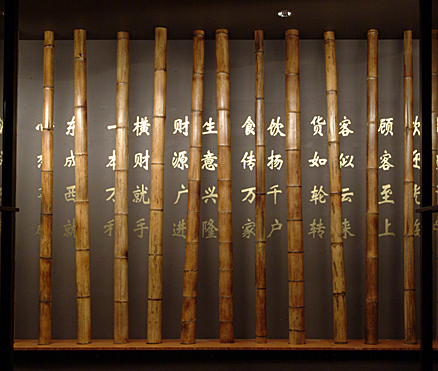 顾客至上
客似云来
货如轮转
饮扬千户
食传万家
生意兴隆
财源广进
横财就手
一本万利
东成西就
心想事成